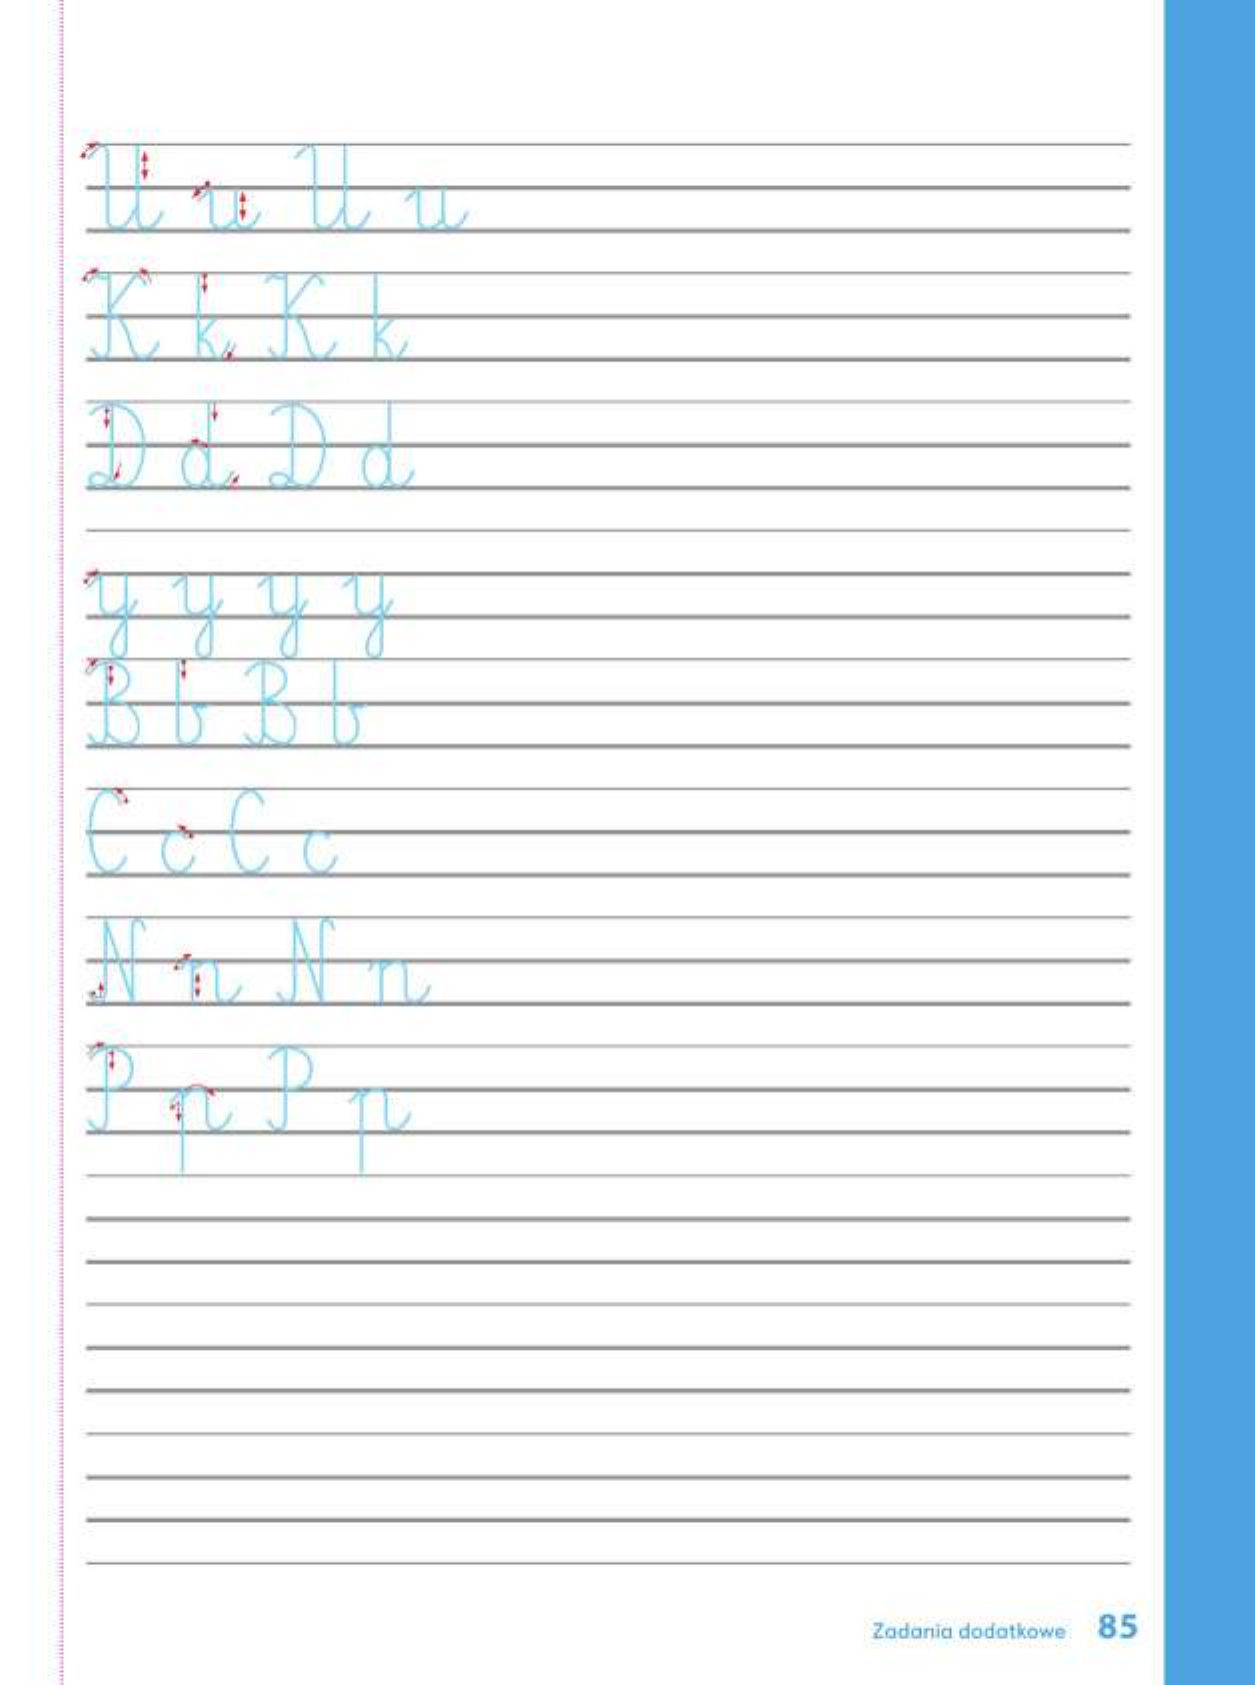 U u U u
K k K k
D d D d
y y y y
B b B b
C c C c
N n N n
P p P p
Zadania dodatkowe 85